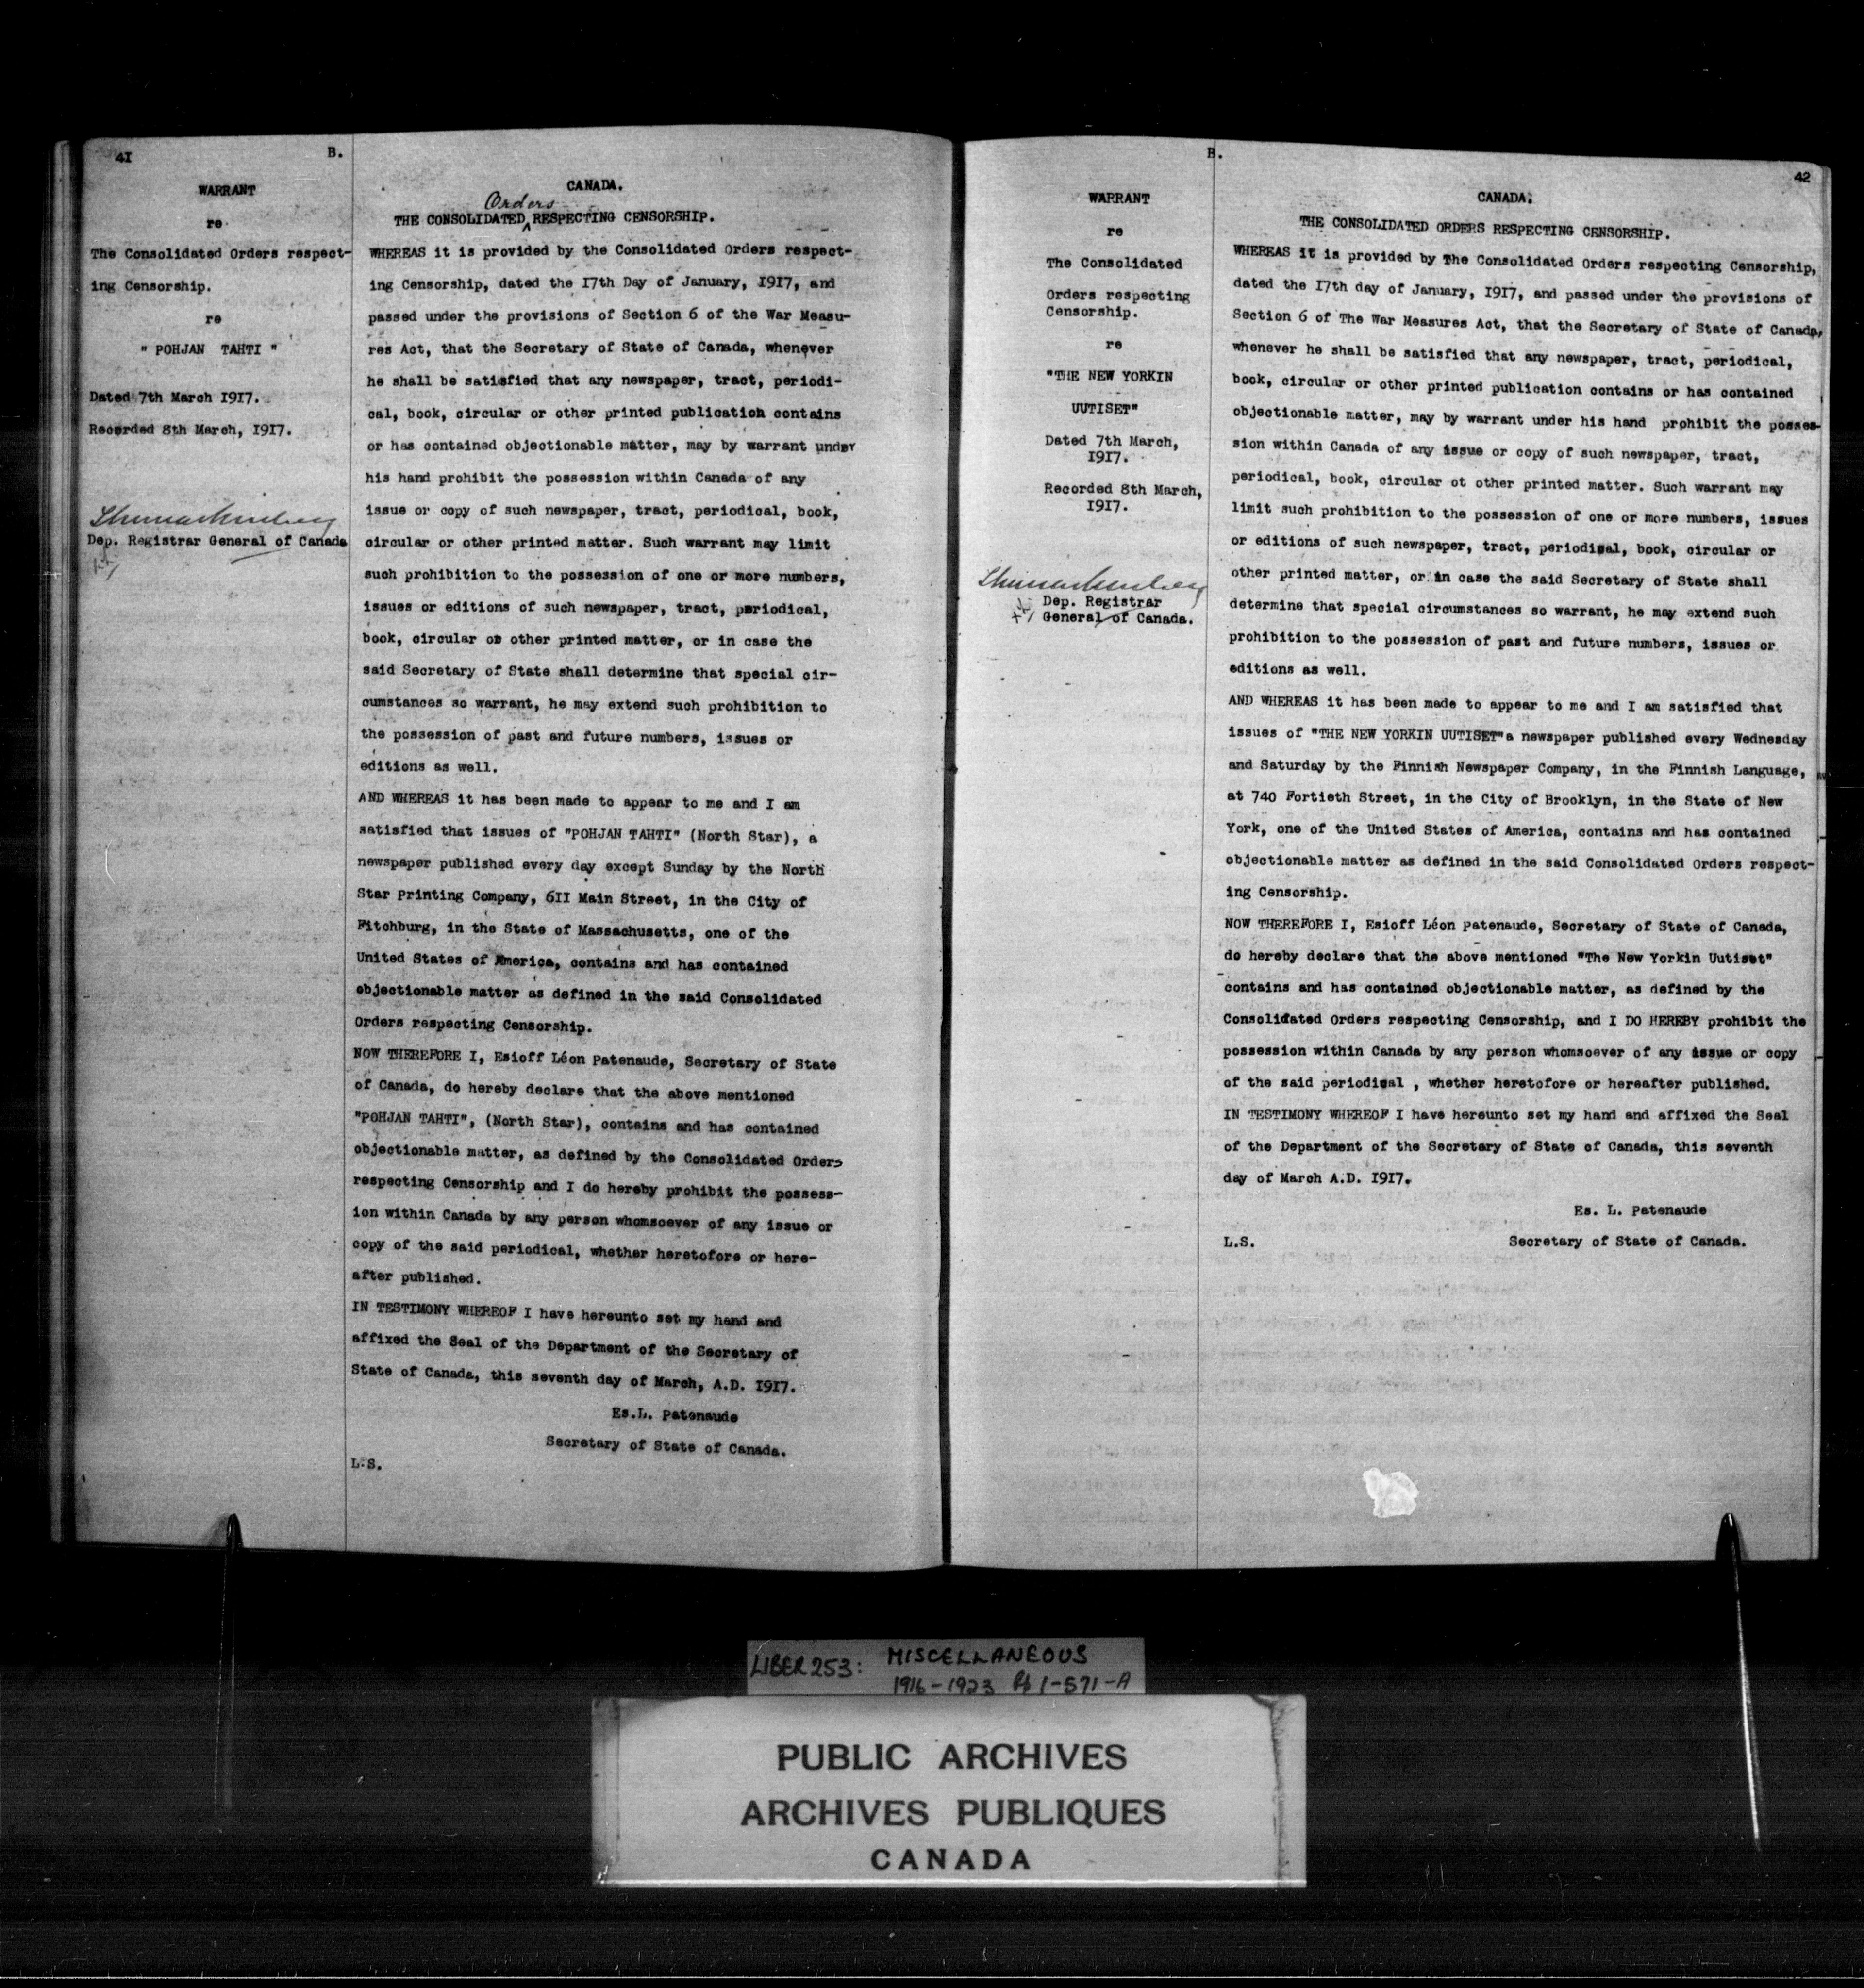 41
B.
WARRANT
re
The Consolidated Orders respect-
ing Censorship.
re
" POHJAN TAHTI "
Dated 7th March 1917.
Recorded 8th March, 1917.
Dep. Registrar General of Canada
CANADA.
Orders
THE CONSOLIDATED RESPECTING CENSORSHIP.
WHEREAS it is provided by the Consolidated Orders respect-
ing Censorship, dated the 17th Day of January, 1917, and
passed under the provisions of Section 6 of the War Measu-
res Act, that the Secretary of State of Canada, whenever
he shall be satisfied that any newspaper, tract, periodi-
cal, book, circular or other printed publication contains
or has contained objectionable matter, may by warrant under
his hand prohibit the possession within Canada of any
issue or copy of such newspaper, tract, periodical, book,
circular or other printed matter. Such warrant may limit
such prohibition to the possession of one or more numbers,
issues or editions of such newspaper, tract, periodical,
book, circular or other printed matter, or in case the
said Secretary of State shall determine that special cir-
cumstances so warrant, he may extend such prohibition to
the possession of past and future numbers, issues or
editions as well.
AND WHEREAS it has been made to appear to me and I am
satisfied that issues of "POHJAN TAHTI" (North Star), a
newspaper published every day except Sunday by the North
Star Printing Company, 611 Main Street, in the City of
Fitchburg, in the State of Massachusetts, one of the
United States of America, contains and has contained
objectionable matter as defined in the said Consolidated
Orders respecting Censorship.
NOW THEREFORE I, Esioff Léon Patenaude, Secretary of State
of Canada, do hereby declare that the above mentioned
"POHJAN TAHTI", (North Star), contains and has contained
objectionable matter, as defined by the Consolidated Orders
respecting Censorship and I do hereby prohibit the possess-
ion within Canada by any person whomsoever of any issue or
copy of the said periodical, whether heretofore or here-
after published.
IN TESTIMONY WHEREOF I have hereunto set my hand and
affixed the Seal of the Department of the Secretary of
State of Canada, this seventh day of March, A.D. 1917.
Es.L. Patenaude
Secretary of State of Canada.
L.S.
B.
42
WARRANT
re
The Consolidated
Orders respecting
Censorship.
re
"THE NEW YORKIN
UUTISET"
Dated 7th March,
1917.
Recorded 8th March,
1917.
Dep. Registrar
General of Canada.
CANADA.
THE CONSOLIDATED ORDERS RESPECTING CENSORSHIP.
WHEREAS it is provided by The Consolidated Orders respecting Censorship,
dated the 17th day of January, 1917, and passed under the provisions of
Section 6 of The War Measures Act, that the Secretary of State of Canada,
whenever he shall be satisfied that any newspaper, tract, periodical,
book, circular or other printed publication contains or has contained
objectionable matter, may by warrant under his hand prohibit the posses-
sion within Canada of any issue or copy of such newspaper, tract,
periodical, book, circular ot other printed matter. Such warrant may
limit such prohibition to the possession of one or more numbers, issues
or editions of such newspaper, tract, periodical, book, circular or
other printed matter, or in case the said Secretary of State shall
determine that special circumstances so warrant, he may extend such
prohibition to the possession of past and future numbers, issues or
editions as well.
AND WHEREAS it has been made to appear to me and I am satisfied that
issues of "THE NEW YORKIN UUTISET"a newspaper published every Wednesday
and Saturday by the Finnish Newspaper Company, in the Finnish Language,
at 740 Fortieth Street, in the City of Brooklyn, in the State of New
York, one of the United States of America, contains and has contained
objectionable matter as defined in the said Consolidated Orders respect-
ing Censorship.
NOW THEREFORE I, Esioff Léon Patenaude, Secretary of State of Canada,
do hereby declare that the above mentioned "The New Yorkin Uutiset"
contains and has contained objectionable matter, as defined by the
Consolidated Orders respecting Censorship, and I DO HEREBY prohibit the
possession within Canada by any person whomsoever of any issue or copy
of the said periodical , whether heretofore or hereafter published.
IN TESTIMONY WHEREOF I have hereunto set my hand and affixed the Seal
of the Department of the Secretary of State of Canada, this seventh
day of March A.D. 1917.
Es. L. Patenaude
L.S. Secretary of State of Canada.
LIBER 253: MISCELLANEOUS
1916-1923 Pg 1-571-A
PUBLIC ARCHIVES
ARCHIVES PUBLIQUES
CANADA